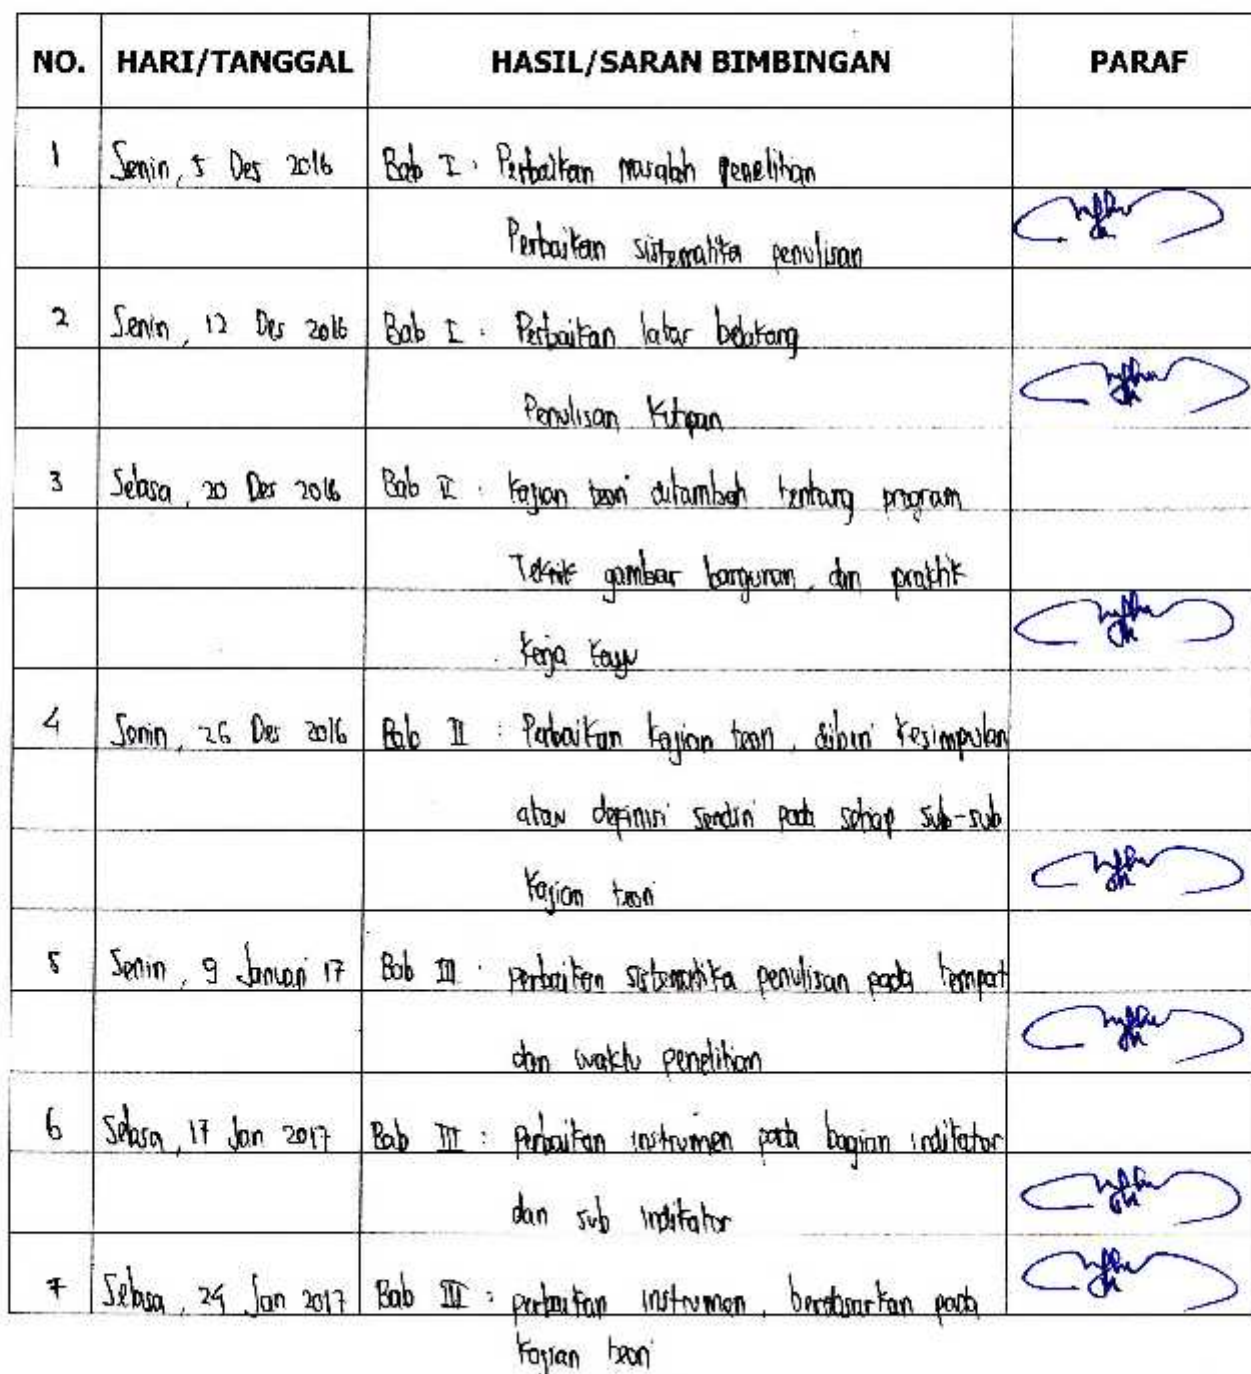 NO. HARI/TANGGAL HASIL/SARAN BIMBINGAN PARAF
1 Senin, 5 Des 2016 Bab I : Perbaikan masalah penelitian
Perbaikan sistematika penulisan
2 Senin, 12 Des 2016 Bab I : Perbaikan latar belakang
Penulisan Kutipan
3 Selasa, 20 Des 2016 Bab II : Kajian teori ditambah tentang program
Teknik gambar bangunan, dan praktik
Kerja Kayu
4 Senin, 26 Des 2016 Bab II : Perbaikan kajian teori, diberi kesimpulan
atau definisi sendiri pada setiap sub-sub
Kajian teori
5 Senin, 9 Januari 17 Bab III : perbaikan sistematika penulisan pada tempat
dan waktu penelitian
6 Selasa, 17 Jan 2017 Bab III : Perbaikan instrumen pada bagian indikator
dan sub indikator
7 Selasa, 24 Jan 2017 Bab III : perbaikan instrumen, berdasarkan pada
Kajian teori